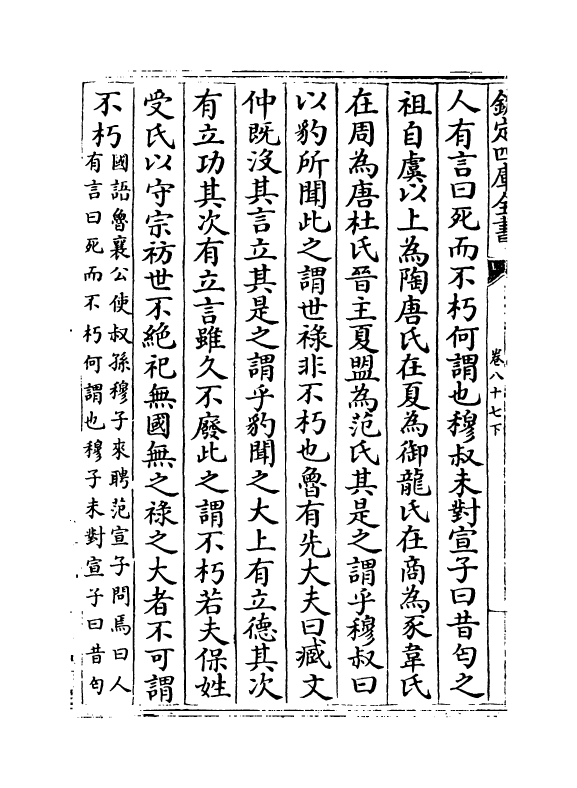 欽定四庫全書
卷八十七下
人有言曰死而不朽何謂也穆叔未對宣子曰昔匄之
祖自虞以上為陶唐氏在夏為御龍氏在商為豕韋氏
在周為唐杜氏晉主夏盟為范氏其是之謂乎穆叔曰
以豹所聞此之謂世祿非不朽也魯有先大夫曰臧文
仲既沒其言立其是之謂乎豹聞之大上有立德其次
有立功其次有立言雖久不廢此之謂不朽若夫保姓
受氏以守宗祊世不絶祀無國無之祿之大者不可謂
不朽
國語魯襄公使叔孫穆子來聘范宣子問焉曰人
有言曰死而不朽何謂也穆子未對宣子曰昔匄